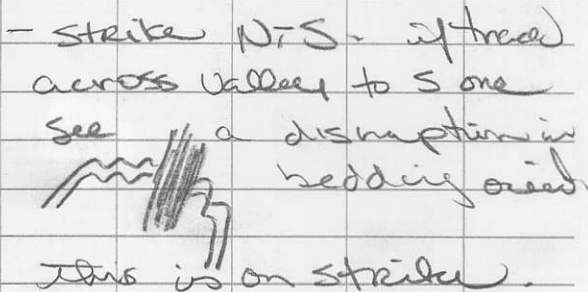 - strike N-S. if traced
across valley to S one
see a disruption in
bedding orient
This is on strike.